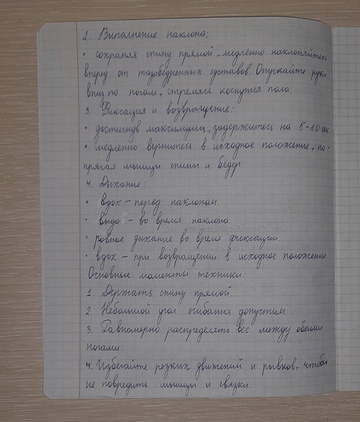 2. Выполнение наклона:
• сохраняя спину прямой, медленно наклоняйтесь
вперед от тазобедренных суставов. Опускайте руки
вниз по ногам, стремясь коснуться пола;
3. Фиксация и возвращение:
• достигнув максимума, задержитесь на 5-10 сек
• медленно вернитесь в исходное положение, на-
прягая мышцы спины и бедер.
4. Дыхание:
• вдох - перед наклоном
• выдо - во время наклона.
• ровное дыхание во время фиксации
• вдох - при возвращении в исходное положение
Основные моменты техники.
1. Держать спину прямой.
2. Небольшой угол сгибания допустим
3. Равномерно распределять вес между обеими
ногами.
4. Избегайте резких движений и рывков, чтобы
не повредить мышцы и связки.